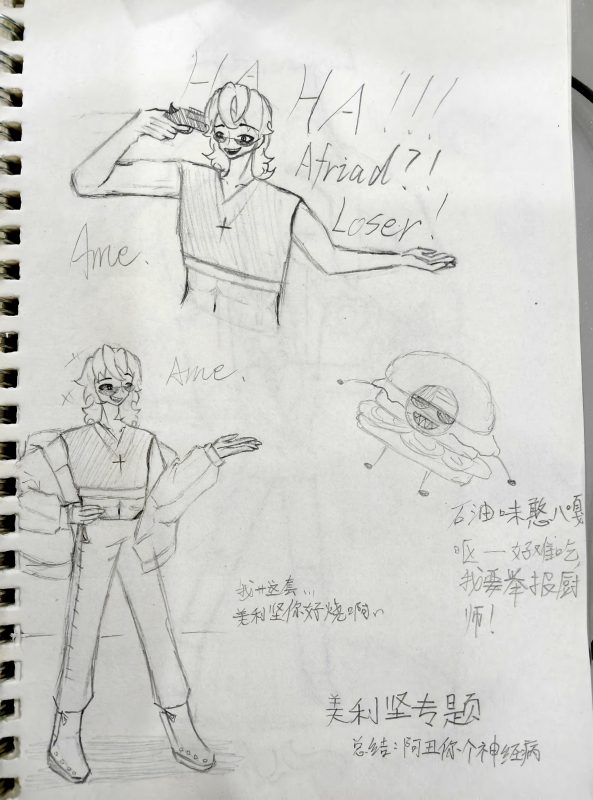 HA HA!!!
Afriad?!
Loser!
Ame.
Ame.
石油味憨八嘎
呕一好难吃,
我要举报厨
师!
我+这套...
美利坚你好烧啊~
美利坚专题
总结:阿丑你个神经病